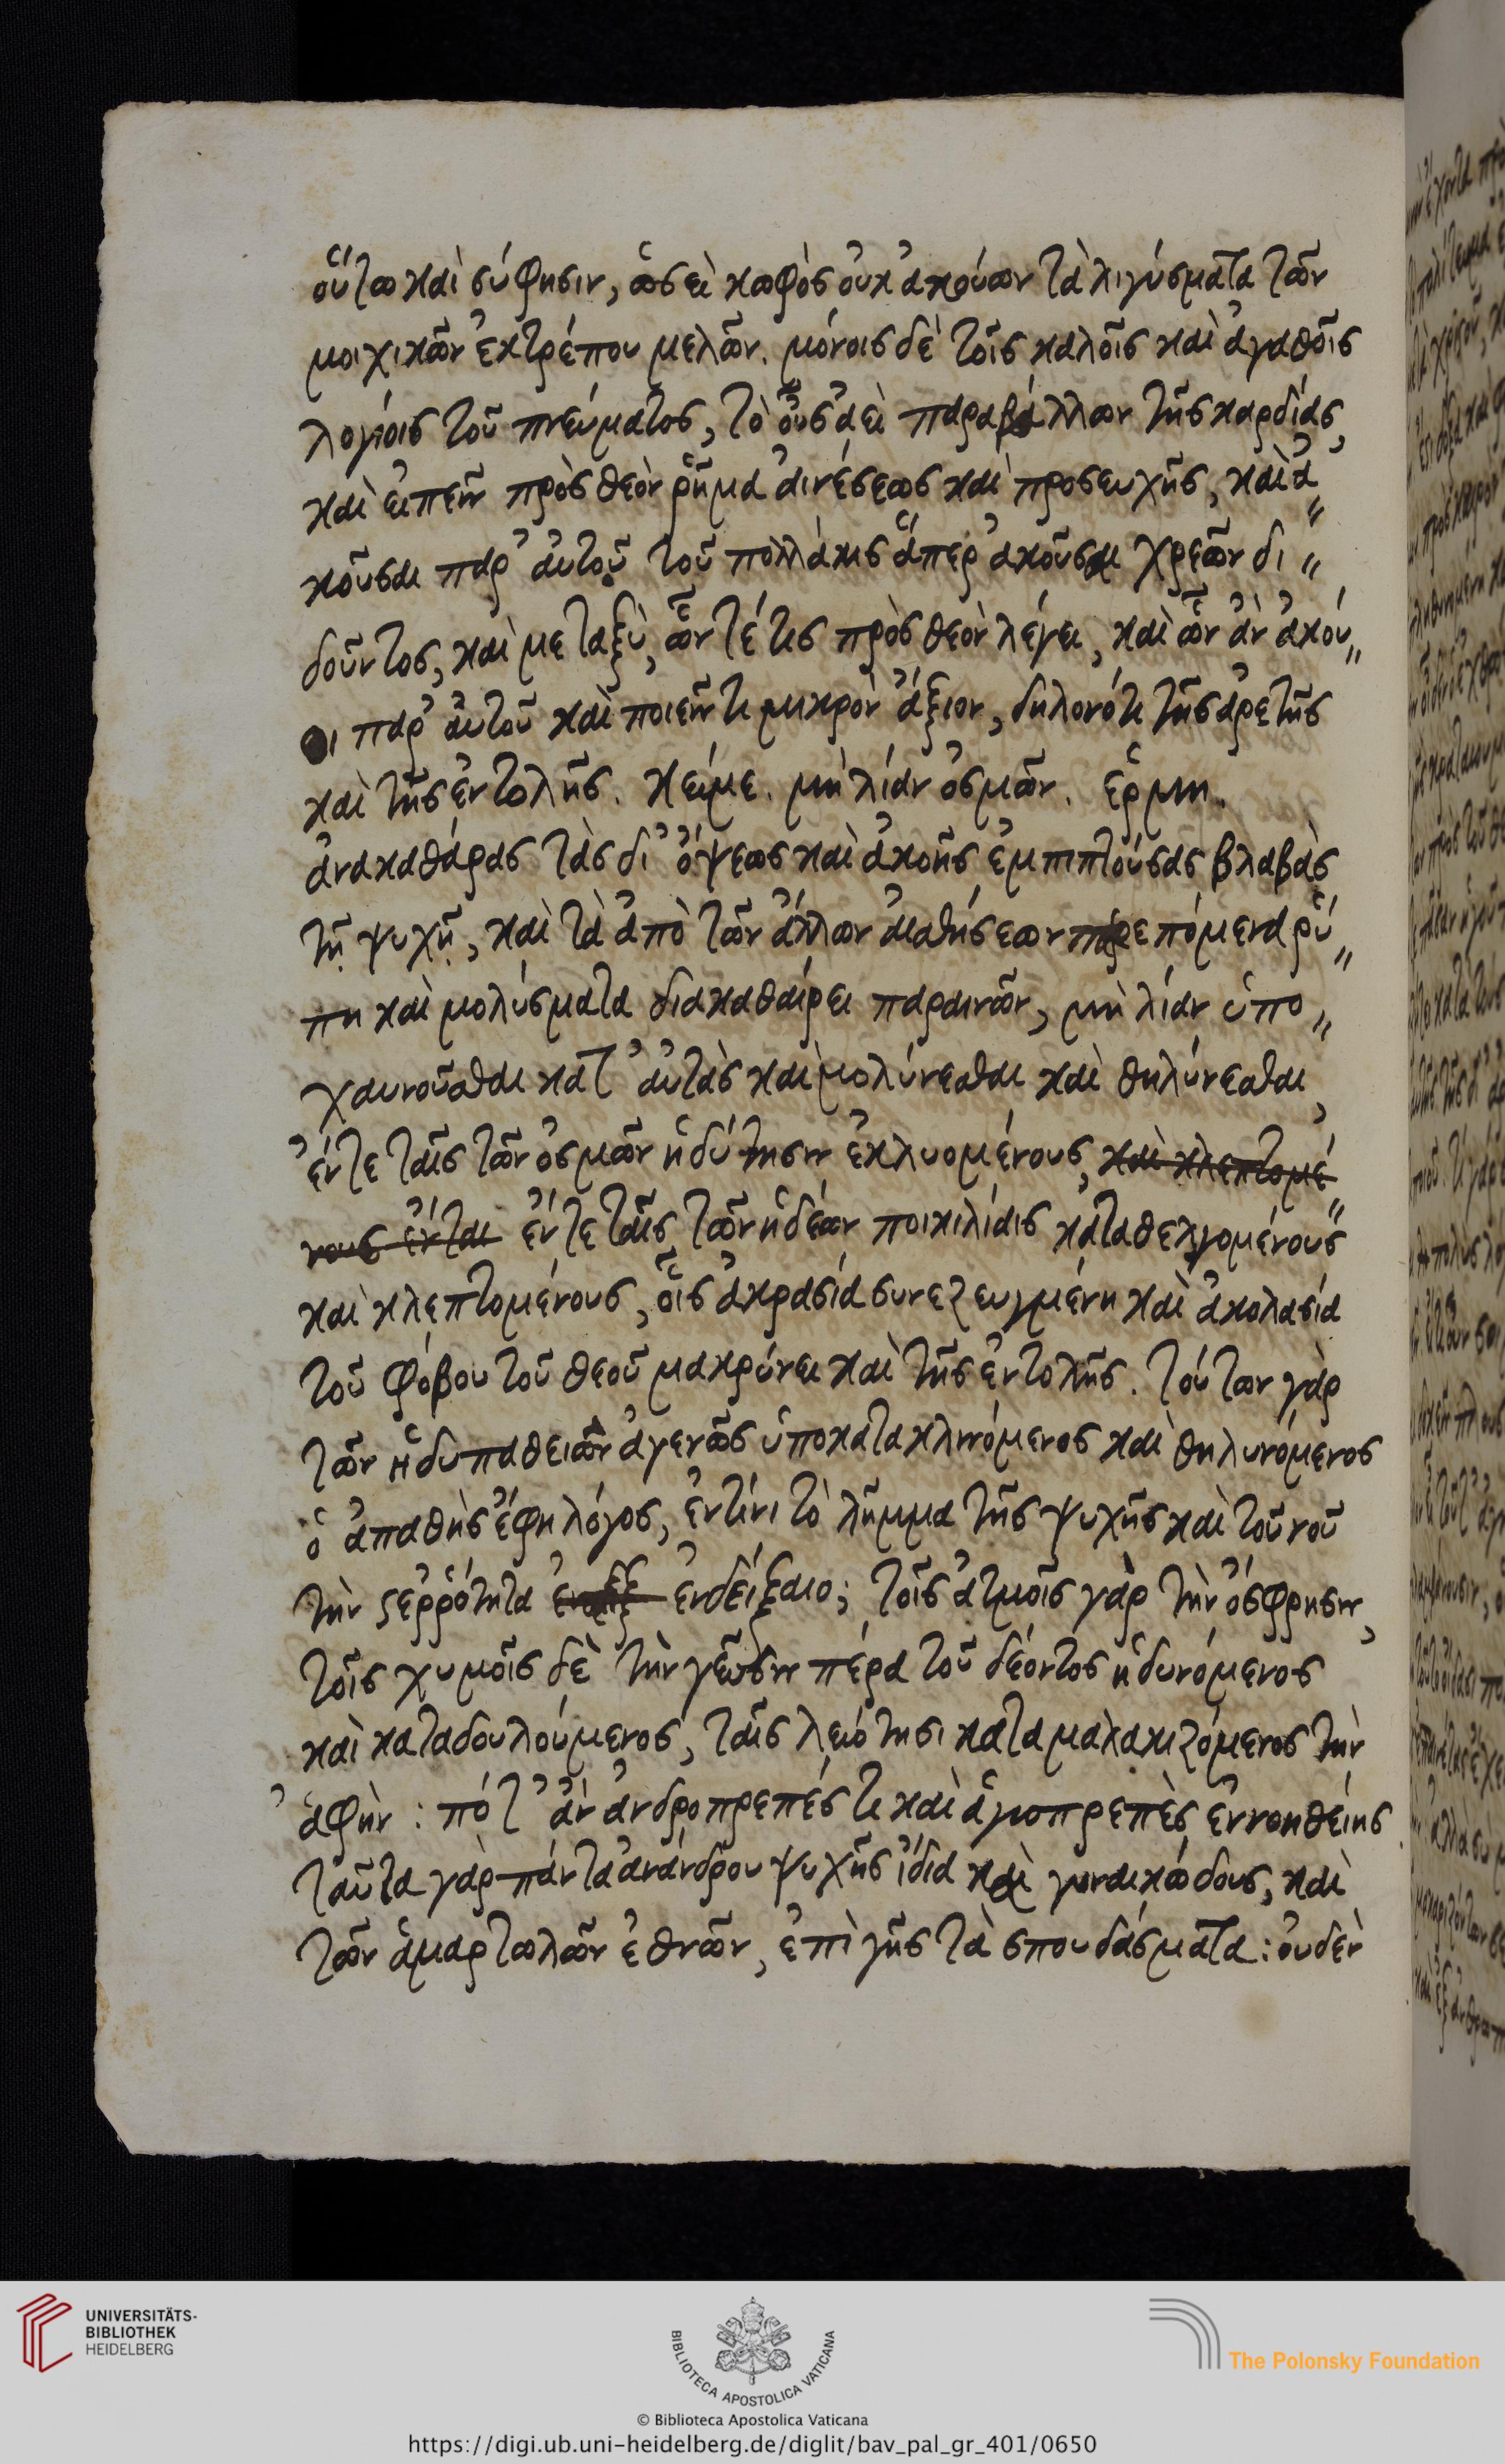 οὕτω καὶ σύ φησιν, ὡσεὶ κωφὸς οὐκ ἀκούων τὰ λιγύσματα τῶν
μοιχικῶν ἐκτρέπου μελῶν. μόνοις δὲ τοῖς καλοῖς καὶ ἀγαθοῖς
λογίοις τοῦ πνεύματος, τὸ οὖς ἀεὶ παραβάλλων τῆς καρδίας,
καὶ εἰπεῖν πρὸς θεὸν ῥῆμα αἰνέσεως καὶ προσευχῆς, καὶ ἀ〃
κοῦσαι παρ' αὐτοῦ τοῦ πολλάκις ἅπερ ἀκοῦσαι χρεῶν δι〃
δοῦντος, καὶ μεταξὺ, ὧν τέ τις πρὸς θεὸν λέγει, καὶ ὧν ἀν ἀκού〃
οι παρ' αὐτοῦ καὶ ποιεῖν τι μικρὸν ἄξιον, δηλονότι τῆς ἀρετῆς
καὶ τῆς ἐντολῆς. κείμε. μὴ λίαν ὀσμῶν. ἑρμη.
ἀνακαθάρας τὰς δι' ὄψεως καὶ ἀκοῆς ἐμπιπτούσας βλαβὰς
τῇ ψυχῇ, καὶ τὰ ἀπὸ τῶν ἄλλων αἰσθήσεων παρεπόμενα ῥύ〃
πη καὶ μολύσματα διακαθαίρει παραινῶν, μὴ λίαν ὑπο〃
χαυνοῦσθαι κατ' αὐτὰς καὶ μολύνεσθαι καὶ θηλύνεσθαι,
ἔν τε ταῖς τῶν ὀσμῶν ἡδύτησιν ἐκλυομένους, καὶ κλεπτομέ〃
νους ἔν ται ἔν τε ταῖς τῶν ἡδέων ποικιλίαις καταθελγομένους
καὶ κλεπτομένους, οἷς ἀκρασία συνεζευγμένη καὶ ἀκολασία
τοῦ φόβου τοῦ θεοῦ μακρύνει καὶ τῆς ἐντολῆς. τούτων γὰρ
τῶν ἡδυπαθειῶν ἀγενῶς ὑποκατακλινόμενος καὶ θηλυνόμενος
ὁ ἀπαθὴς ἔφη λόγος, ἐν τίνι τὸ λῆμμα τῆς ψυχῆς καὶ τοῦ νοῦ
τὴν στερρότητα ἐνδείξαιο; τοῖς ἀτμοῖς γὰρ τὴν ὄσφρησιν,
τοῖς χυμοῖς δὲ τὴν γεῦσιν πέρα τοῦ δέοντος ἡδυνόμενος
καὶ καταδουλούμενος, ταῖς λειότησι καταμαλακιζόμενος τὴν
ἀφὴν: πότ' ἀν ἀνδροπρεπές τι καὶ ἁγιοπρεπὲς ἐννοηθείης
ταῦτα γὰρ πάντα ἀνάνδρου ψυχῆς ἴδια καὶ γυναικώδους, καὶ
τῶν ἁμαρτωλῶν ἐθνῶν, ἐπὶ γῆς τὰ σπουδάσματα: οὐδὲν
UNIVERSITÄTS-
BIBLIOTHEK
HEIDELBERG
BIBLIOTECA APOSTOLICA VATICANA
The Polonsky Foundation
© Biblioteca Apostolica Vaticana
https://digi.ub.uni-heidelberg.de/diglit/bav_pal_gr_401/0650